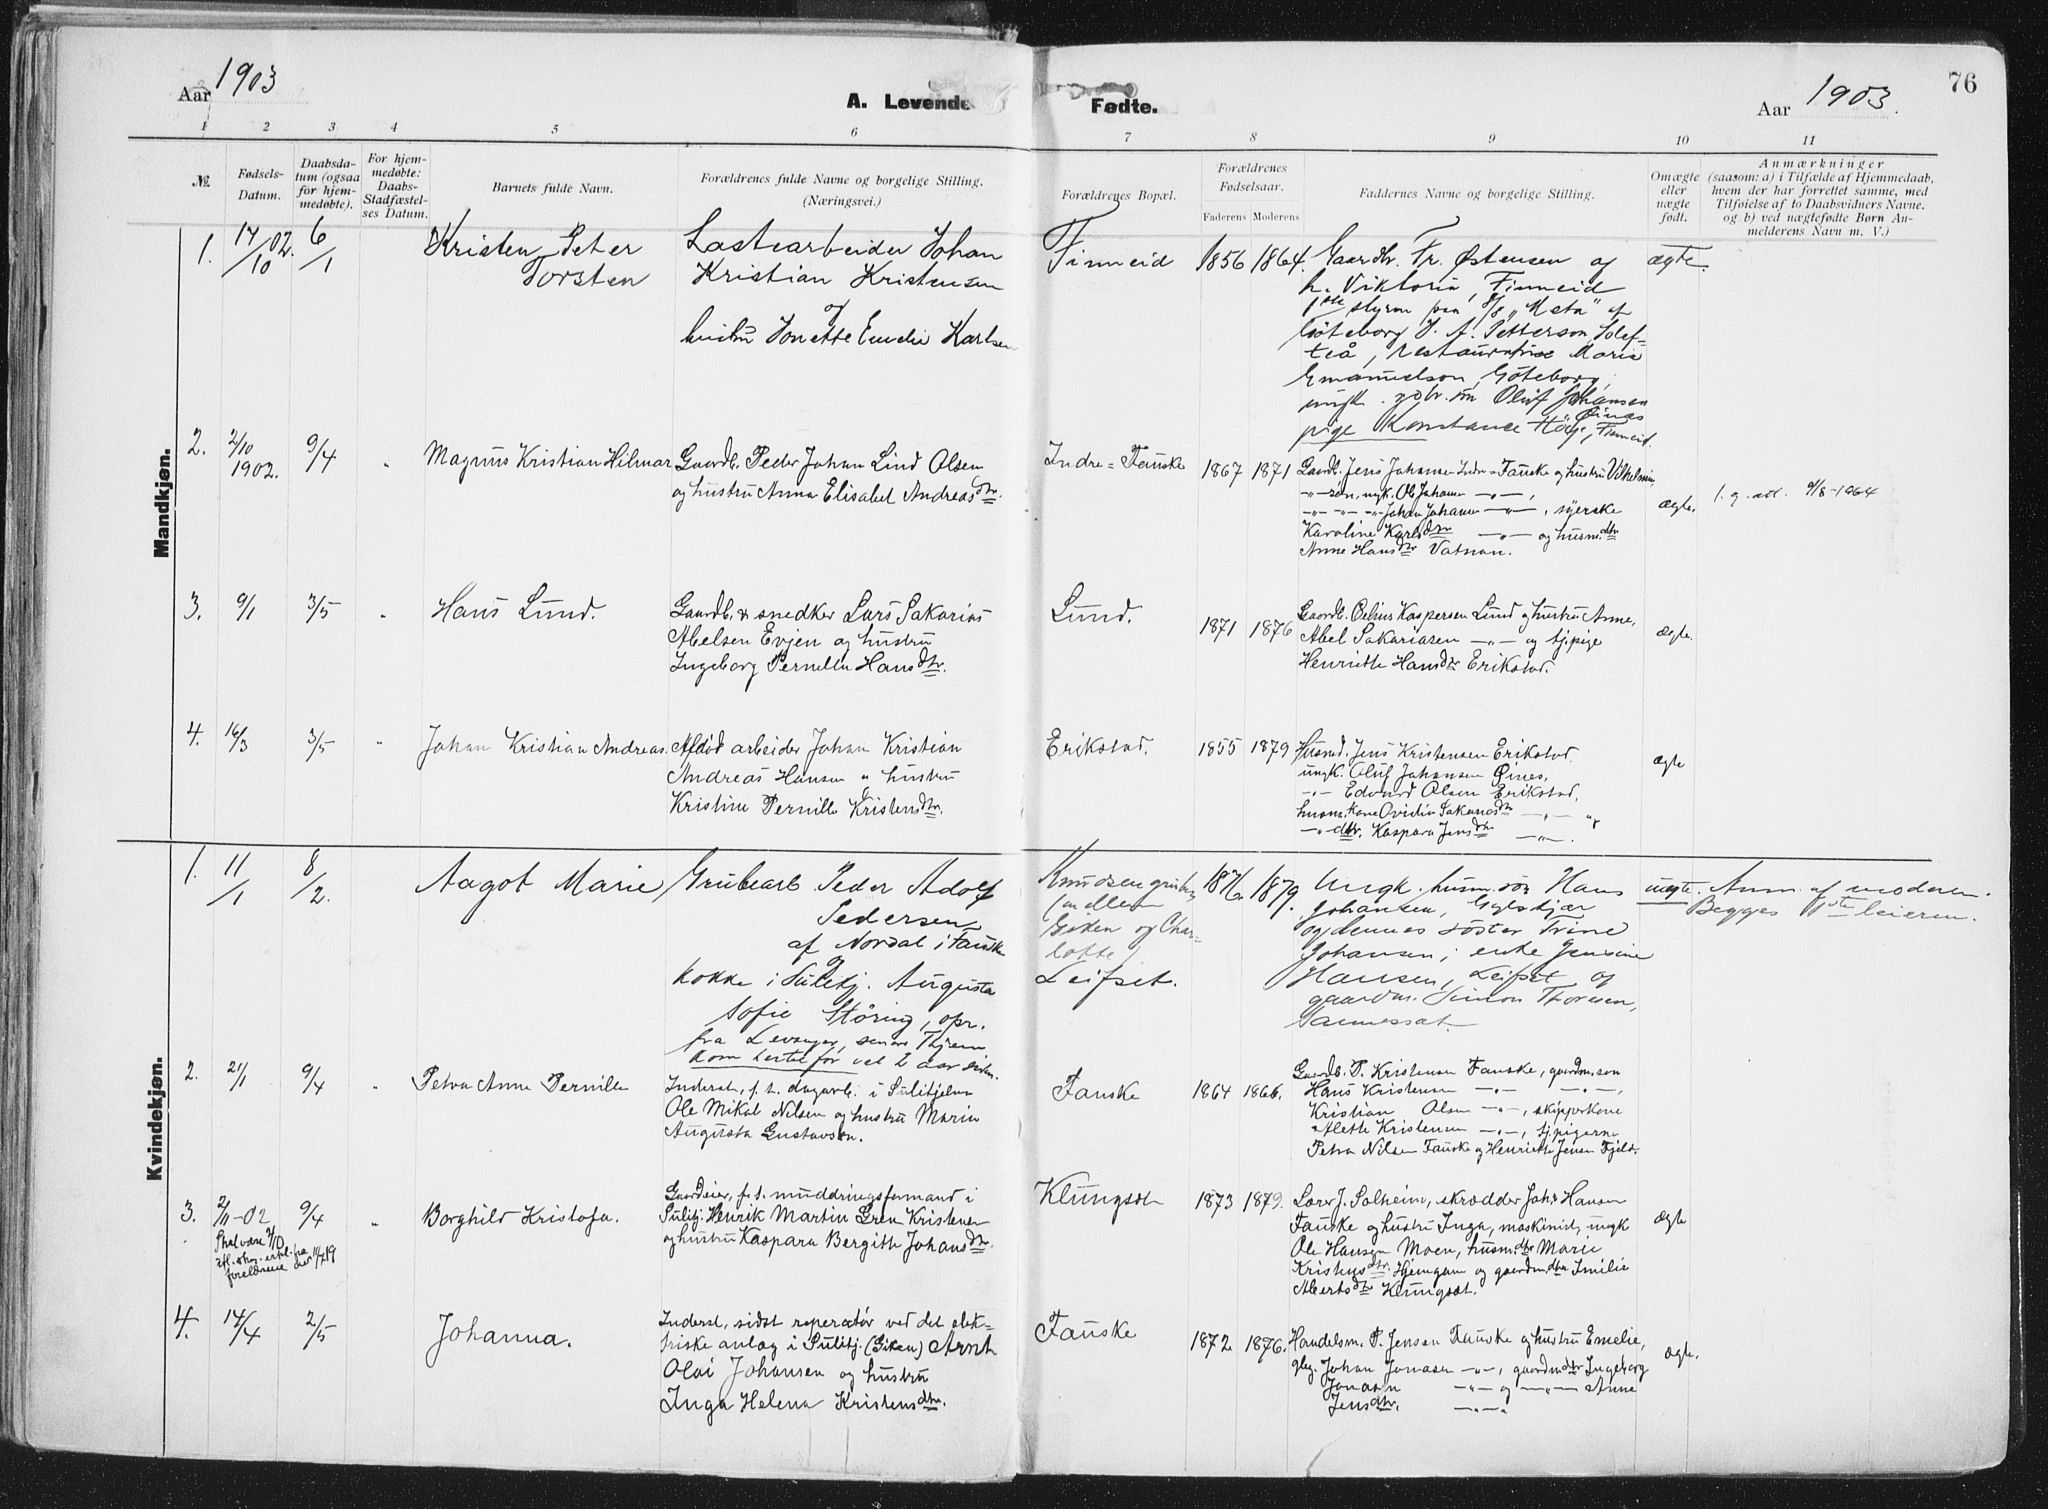 Aar 1903
A. Levende Fødte.
Aar 1903.
76
1 2 3 4 5 6 7 8 9 10 11
№.
Fødsels-
Datum.
Daabsda-
tum (ogsaa
for hjem-
medøbte).
For hjem-
medøbte:
Daabs-
Stadfæstel-
ses Datum.
Barnets fulde Navn.
Forældrenes fulde Navne og borgelige Stilling.
(Næringsvei.)
Forældrenes Bopæl.
Forældrenes
Fødselsaar.
Faderens Moderens
Faddernes Navne og borgelige Stilling.
Omægte
eller
uægte
født.
Anmærkninger
(saasom: a) i Tilfælde af Hjemmedaab,
hvem der har forrettet samme, med
Tilføielse af to Daabsvidners Navne,
og b) ved uægtefødte Børn An-
melderens Navn m. V.)
Mandkjøn.
1.
17/10 02.
6/1
Kristen Peter
Torsten
Lastearbeider Johan
Kristian Kristensen
og
hustru Jonette Emelie Karlsen
Finneid
1856 1864.
Gaardbr. Fr. Østensen og
h. Viktoria, Finneid
1ste styrm paa S/S "Meta" af
Göteborg J. A. Petterson,
Maria
Emanuelson, Göteborg,
ungk. gdbr. søn Oluf Johansen
Øines
pige Konstance Finneid.
ægte.
2.
2/10
1902.
9/4
"
Magnus Kristian Hilmar
Gaardb. Peder Johan Lind Olsen
og hustru Anna Elisabet Andreasdtr.
Indre=Fauske
1867 1871
Gaardb. Jens Johansen Indre=Fauske og hustru
-"- søn, ungk. Ole Johansen -"-,
-"- -"- -"- Johan Johansen -"-, syerske
Karoline Karlsdtr -"- og husm.dtr
Anne Hansdtr Vatnan.
ægte.
9/8-1964
3.
9/1
3/5
"
Hans Lund.
Gaardb. & snedker Lars Sakarias
Abelsen Evjen og hustru
Ingeborg Pernille Hansdtr.
Lund.
1871 1876
Gaardb. Kaspersen Lund og hustru Anne,
Abel Sakariasen -"- og tj.pige
Henriette Hansdtr Erikstad.
ægte.
4.
16/3
3/5
"
Johan Kristian Andreas.
Afdød arbeider Johan Kristian
Andreas Hansen og hustru
Kristine Pernille Kristensdtr.
Erikstad.
1855 1879
Husmd. Jens Kristensen Erikstad.
ungk. Oluf Johansen Øines,
-"- Edvard Olsen Erikstad,
husm. kone Ovidia Sakariasdtr -"- og
-"- dtr. Kaspara Jensdtr -"-.
ægte
Kvindekjøn.
1.
11/1
8/2.
Aagot Marie
Grubearb Peder Adolf
Pedersen
af Nordal i Fauske
og
kokke i Sulitj. Augusta
Sofie Störing, opr.
fra Levanger, senere
kom hertil for vel 2 aar siden.
Knudsens grube,
(mellem
Giken og Char-
lotte)
Leifset.
1876. 1879.
Ungk. husm. søn Hans
Johansen,
og dennes søster Trine
Johansen, enke Jensine
Hansen, Leifset og
gaardm. Simon Thoresen,
uægte.
Anm. af moderen.
Begges 1ste leierm.
2.
21/1
9/4
"
Petra Anne Pernille
Inderst, f. t. dagarb. i Sulitjelma
Ole Mikal Nilsen og hustru Marie
Augusta Gustavson.
Fauske
1864 1866.
Gaardb. P. Kristensen Fauske, gaardm.søn
Hans Kristensen -"- -"-,
Kristian Olsen -"-, skipperkone
Alette Kristensen -"-, tj.pigerne
Petra Nilsen Fauske og Henriette Jensen Fjeld.
3.
2/11-02
Skal være 2/10
9/4
"
Borghild Kristofa.
Gaardeier, f. t. muddringsformand i
Sulitj. Henrik Martin Gren Kristensen
og hustru Kaspara Bergitte Johansdtr.
Klungset
1873 1879.
Lærer J. Solheim, skrædder Johs Hansen
Fauske og hustru Inga, maskinist, ungk
Ole Hansen Moen, husm.dtr Marie
Kristensdtr. Hjemgam og gaardm.dtr Emilie
Albertsdtr Klungset.
ægte
4.
14/4
2/5
Johanna.
Inderst, sidst reperatør ved det elek-
triske anlæg i Sulitj. (Giken) Arnt
Olai Johansen og hustru
Inga Helena Kristensdtr.
Fauske
1872 1876.
Handelsm. P. Jensen Fauske og hustru Emelie,
Johan Jonasen -"-, gaardmdtr Ingeborg
Jonasen -"- og -"- Anne
Jensdtr. -"-
ægte.